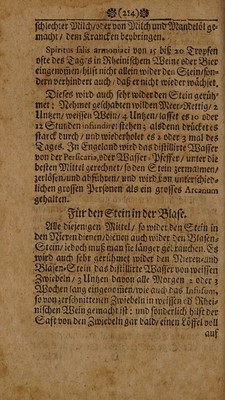 (214)
schlechter Milch/oder von Milch und Mandelöl ge-
macht/ dem Krancken beybringen.
Spiritus salis armoniaci von 15 biß 20 Tropfen
ofte des Tages in Rheinischem Weine oder Bier
eingenommen/ hilft nicht allein wider den Stein/son-
dern verhindert auch/ daß er nicht wieder wächset.
Dieses wird auch sehr wider den Stein gerüh-
met: Nehmet geschabten wilden Meer-Rettig/ 2
Untzen/ weissen Wein/ 4 Untzen/ lasset es 10 oder
12 Stunden infundiret stehen; alsdenn drücket es
starck durch/ und wiederholet es 2 oder 3 mal des
Tages. In Engeland wird das distillirte Wasser
von der Persicaria, oder Wasser-Pfeffer/ unter die
besten Mittel gerechnet/ so den Stein zermalmen/
zerlösen und abführen/ und wird von unterschied-
lichen grossen Personen als ein grosses Arcanum
gehalten.
Für den Stein in der Blase.
Alle diejenigen Mittel/ so wider den Stein in
den Nieren dienen/ dienen auch wider den Blasen-
Stein/ jedoch muß man sie länger gebrauchen. Es
wird auch sehr gerühmet wider den Nieren- und
Blasen-Stein das distillirte Wasser von weissen
Zwiebeln/ 3 Untzen davon alle Morgen 2 oder 3
Wochen lang eingenommen/ wie auch das Infusum,
so von zerschnittenen Zwiebeln in weissen Rhei-
nischen Wein gemacht ist: und sonderlich hilft der
Saft von den Zwiebeln gar bald/ einen Löffel voll
auf